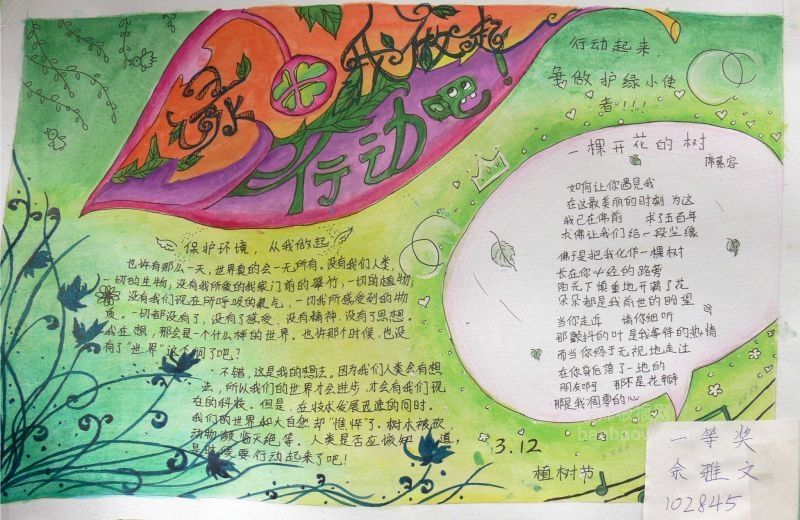 我做起
行动吧!
行动起来
要做护绿小使
者!!!
一棵开花的树
席慕容
如何让你遇见我
在这最美丽的时刻 为这
我已在佛前 求了五百年
求佛让我们结一段尘缘
佛于是把我化作一棵树
长在你必经的路旁
阳光下慎重地开满了花
朵朵都是我前世的盼望
当你走近 请你细听
那颤抖的叶是我等待的热情
而当你终于无视地走过
在你身后落了一地的
朋友啊 那不是花瓣
那是我凋零的心
保护环境,从我做起
也许有那么一天,世界真的会一无所有。没有我们人类,
一切的生物,没有我所爱的我家门前的翠竹,一切的植物;
没有我们现在所呼吸的氧气,一切我所感受到的物
质。一切都没有了,没有了感受,没有精神,没有了思想。
我在想,那会是一个什么样的世界。也许那个时候,也没
有了“世界”这个词了吧?
不错,这是我的想法。因为我们人类会有想
法,所以我们的世界才会进步,才会有我们现
在的科技。但是,在技术发展迅速的同时。
我们的世界和大自然却“憔悴”了。树木被砍
动物濒临灭绝等。人类是否应该知道,
是时候要行动起来了吧!
3.12
植树节
一等奖
余雅文
102845